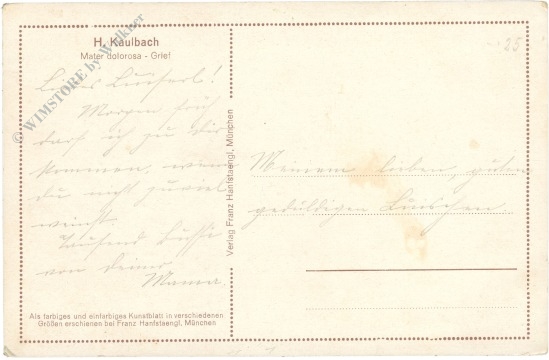 H. Kaulbach
Mater dolorosa - Grief
Liebes Luiserl!
Morgen früh
darf ich zu Dir
kommen, wenn
du nicht zuviel
weinst.
Tausend Bussi
von deiner
Mama.
Als farbiges und einfarbiges Kunstblatt in verschiedenen
Größen erschienen bei Franz Hanfstaengl, München
Verlag Franz Hanfstaengl, München
25
Meinem lieben, guten
geduldigen Luischen.
© WIMSTORE by Wallner